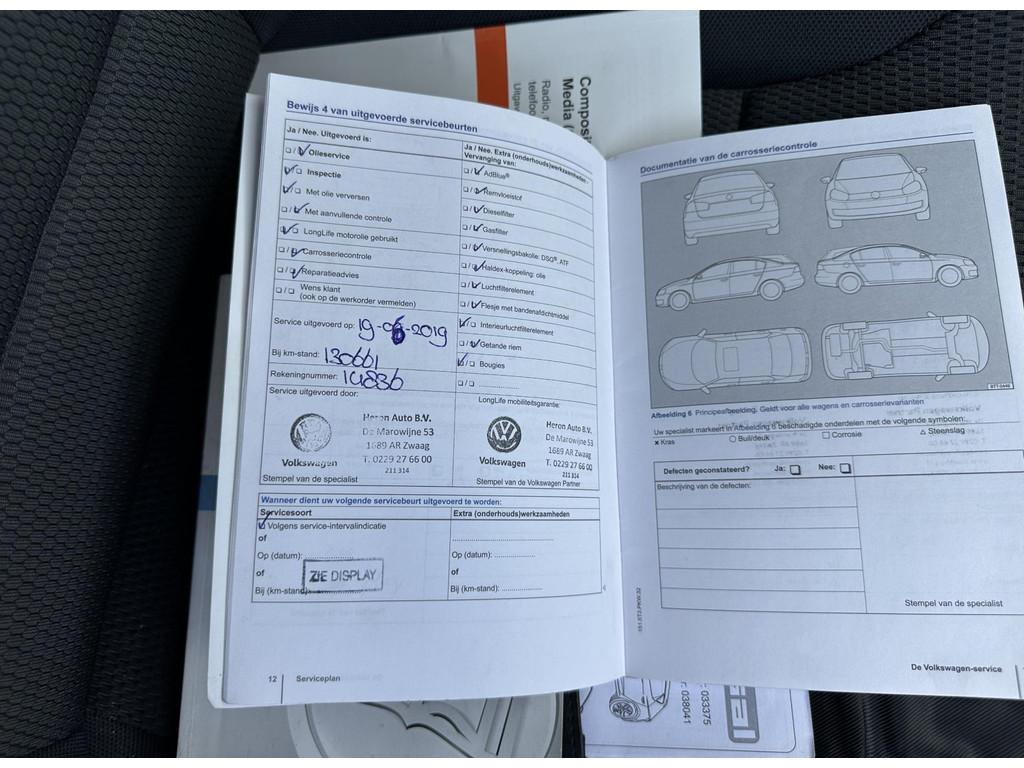 Composi
Media (
Radio, r
telefoo
Uitgav
Bewijs 4 van uitgevoerde servicebeurten
Ja / Nee. Uitgevoerd is:
Olieservice
Inspectie
Met olie verversen
Met aanvullende controle
LongLife motorolie gebruikt
Carrosseriecontrole
Reparatieadvies
Wens klant
(ook op de werkorder vermelden)
Service uitgevoerd op: 19-08-2019
Bij km-stand: 130661
Rekeningnummer: 14836
Service uitgevoerd door:
Heron Auto B.V.
De Marowijne 53
1689 AR Zwaag
T. 0229 27 66 00
211 314
Volkswagen
Stempel van de specialist
Ja / Nee. Extra (onderhouds)werkzaamheden -
Vervanging van:
AdBlue®
Remvloeistof
Dieselfilter
Gasfilter
Versnellingsbakolie: DSG®, ATF
Haldex-koppeling: olie
Luchtfilterelement
Flesje met bandenafdichtmiddel
Interieurluchtfilterelement
Getande riem
Bougies
LongLife mobiliteitsgarantie:
Heron Auto B.V.
De Marowijne 53
1689 AR Zwaag
T. 0229 27 66 00
211 314
Volkswagen
Stempel van de Volkswagen Partner
Wanneer dient uw volgende servicebeurt uitgevoerd te worden:
Servicesoort
Volgens service-intervalindicatie
of
Op (datum):
of
Bij (km-stand)
ZIE DISPLAY
Extra (onderhouds)werkzaamheden
Op (datum):
of
Bij (km-stand):
12 Serviceplan
Documentatie van de carrosseriecontrole
B7T-0446
Afbeelding 6 Principeafbeelding. Geldt voor alle wagens en carrosserievarianten
Uw specialist markeert in Afbeelding 6 beschadigde onderdelen met de volgende symbolen:
x Kras ○ Buil/deuk □ Corrosie △ Steenslag
Defecten geconstateerd? Ja: Nee:
Beschrijving van de defecten:
Stempel van de specialist
151.5T3.PKW.32
De Volkswagen-service
033375
038041